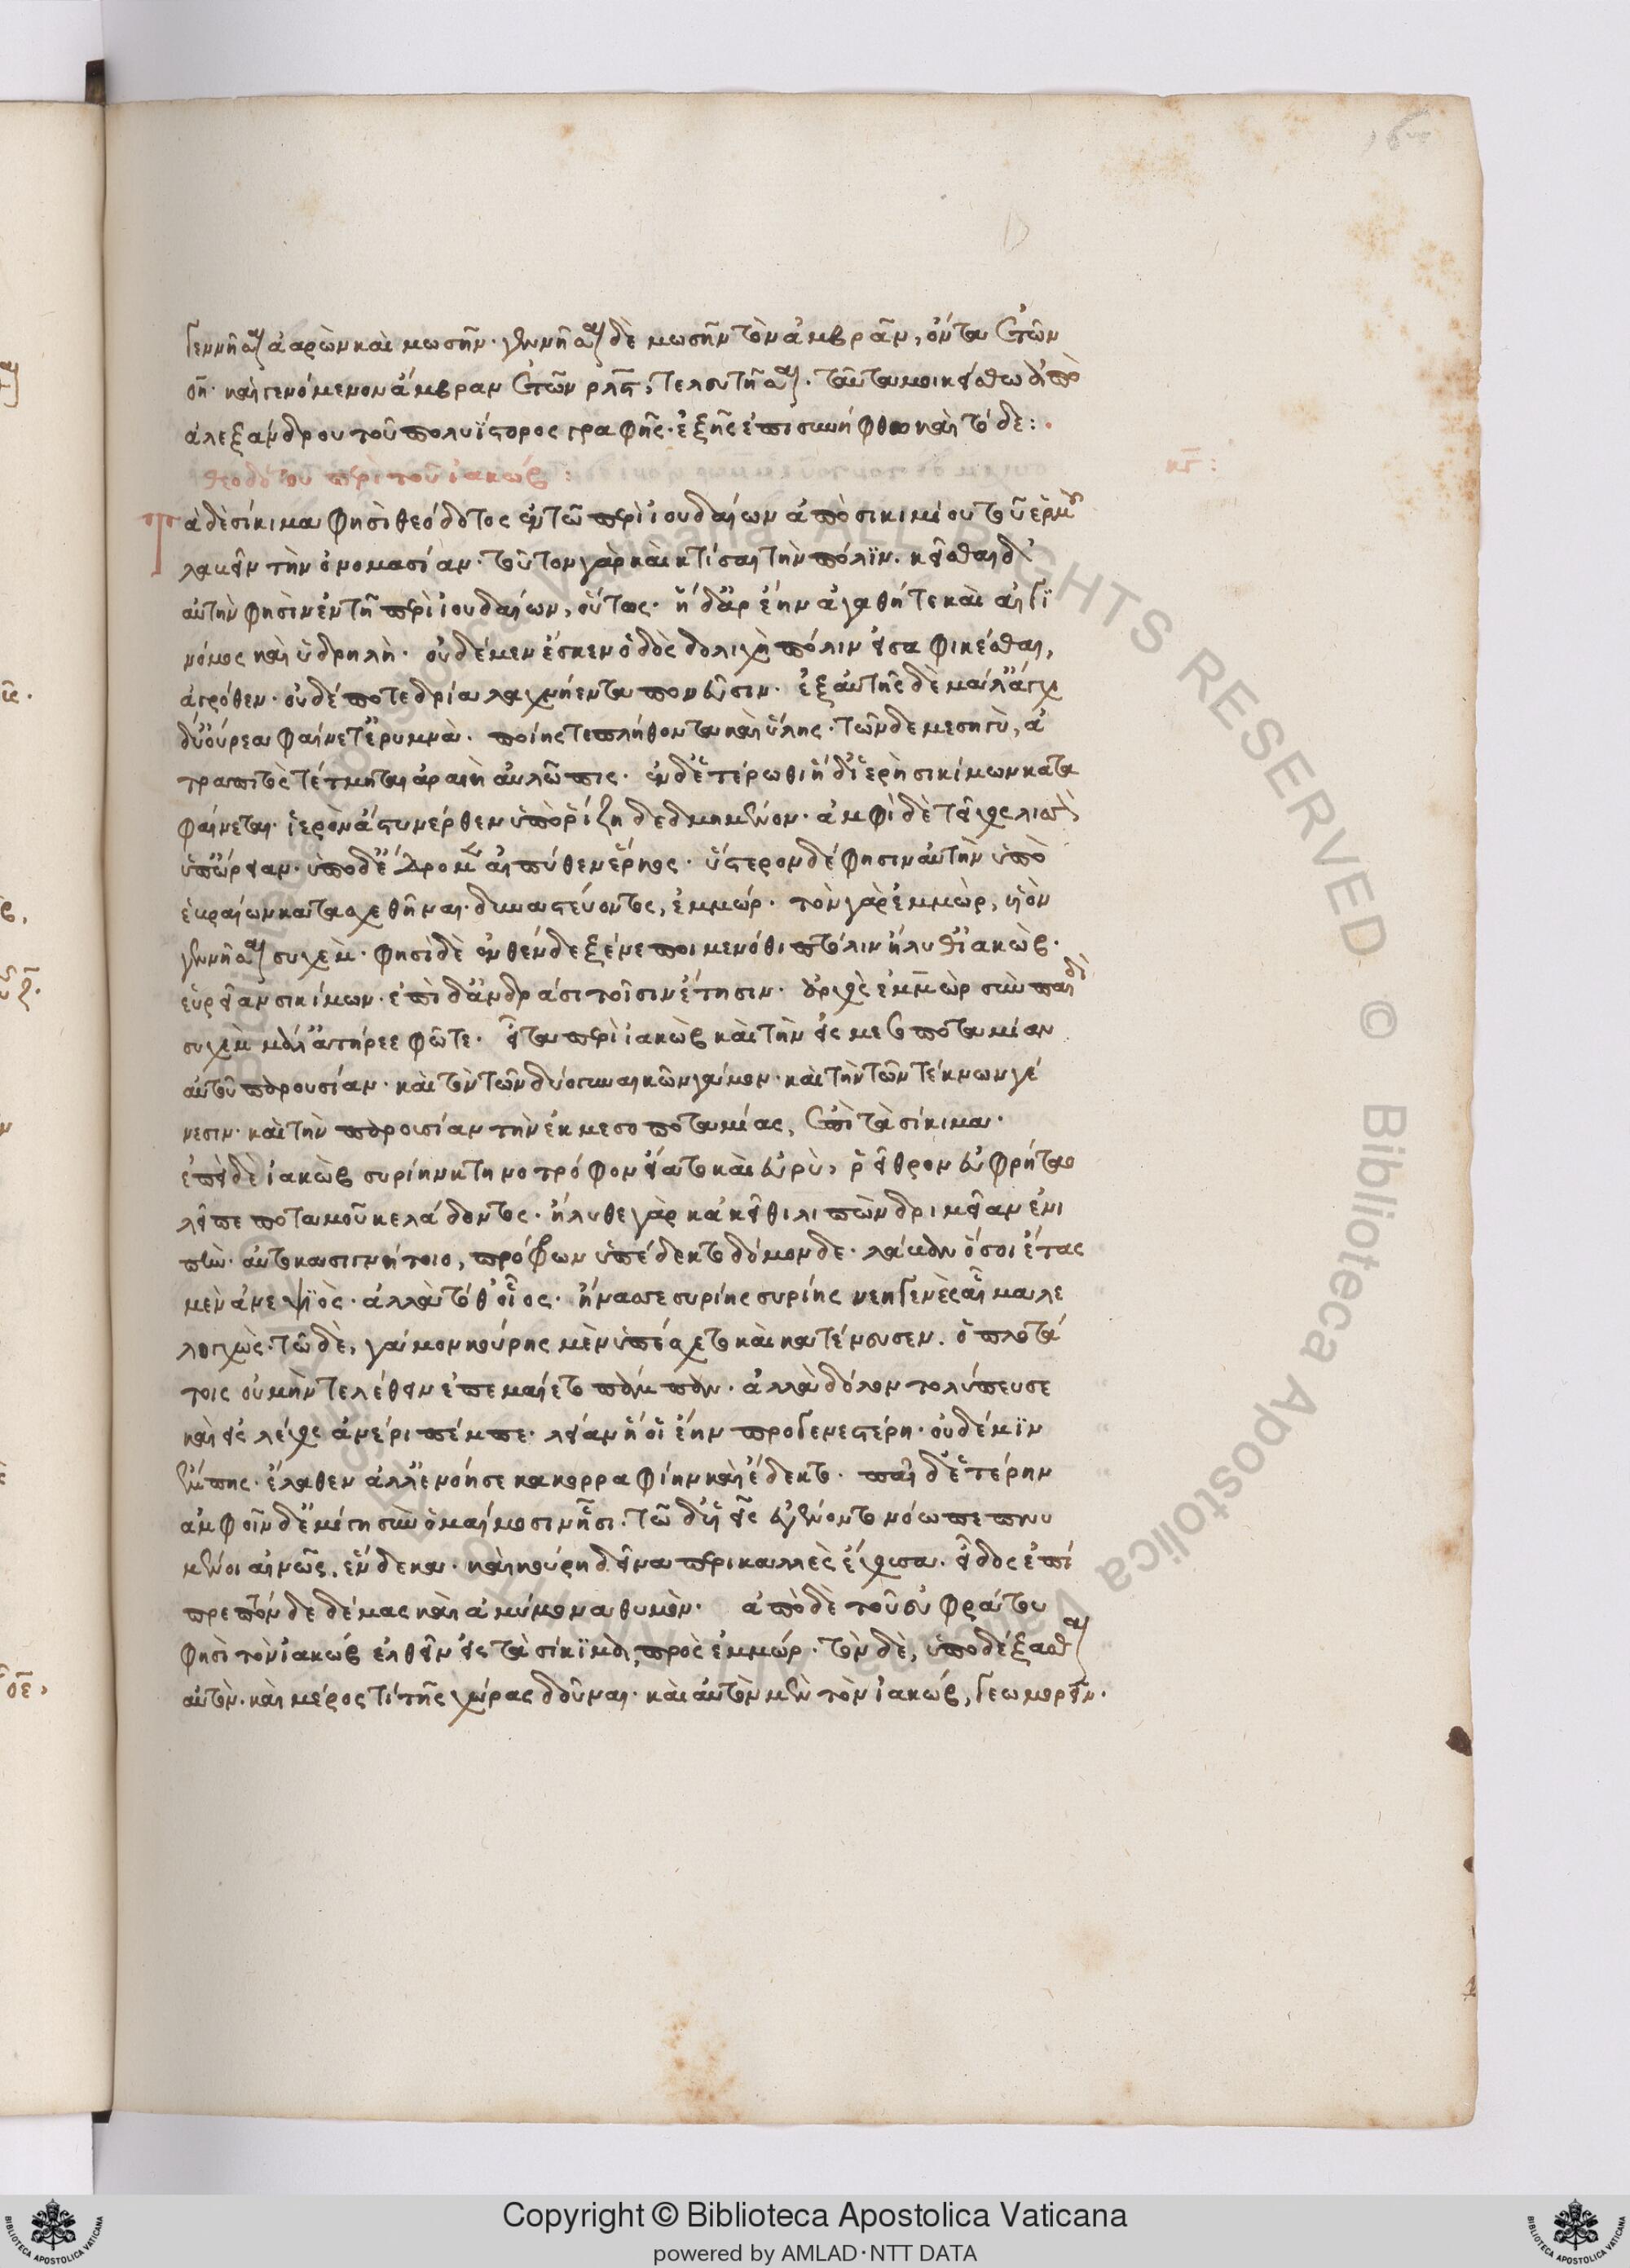 γεννῆσαι ἀαρὼν καὶ μωσῆν· γεννῆσαι δὲ μωσῆν τὸν ἀμβρᾶμ, ὄντα ἐτῶν
οη· καὶ γενόμενον ἄμβραν ἐτῶν ρλς, τελευτῆσαι. ταῦτά μοι κείσθω ἀπὸ
ἀλεξάνδρου τοῦ πολυΐστορος γραφῆς· ἑξῆς ἐπισυνήφθω καὶ τόδε:
θεοδότου περὶ τοῦ ἰακώβ: κγ:
Τὰ δὲ σίκιμα φησὶ θεόδοτος ἐν τῶ περὶ ἰουδαίων ἀπὸ σικιμίου τοῦ ἑρμοῦ
λαβεῖν τὴν ὀνομασίαν· τοῦτον γὰρ καὶ κτίσαι τὴν πόλϊν. κεῖσθαι δ'
αὐτὴν φησὶν ἐν τῆ περὶ ἰουδαίων, οὕτως· ἡ δ' ἄρ ἔην ἀγαθή τε καὶ αἰγϊ
νόμος καὶ ὑδρηλὴ· οὐδὲ μὲν ἔσκεν ὁδὸς δολιχὴ πόλιν εἰσαφικέσθαι,
ἀγρόθεν· οὐδέ ποτε δρία λαχνήεντα πονεῦσιν. ἐξ αὐτῆς δὲ μάλ' ἄγχι
δύ' οὔρεα φαίνετ' ἐρυμνὰ· ποίης τε πλήθοντα καὶ ὕλης· τῶν δε μεσηγὺ, ἀ
τραπιτὸς τέτμηται ἀραιὴ αὐλῶπις· ἐν δ' ἑτέρωθι ἡ δ' ἱερὴ σικίμων κατα
φαίνεται· ἱερὸν ἄστυ νέρθεν ὑπὸ ῥίζη δεδμημένον· ἀμφὶ δὲ τεῖχος λισσὸν
ὑπώρειαν· ὑπο δ' ἔδρομεν αἰπύθεν ἕρκος· ὕστερον δέ φησιν αὐτὴν ὑπὸ
ἑβραίων κατασχεθῆναι· δυναστεύοντος, ἐμμώρ· τὸν γὰρ ἐμμὼρ, υἱὸν
γεννῆσαι συχὲμ· φησὶ δὲ ἐνθένδε ξένε ποιμενόθι πτόλιν ἤλυθ' ἰακὼβ·
εὐρεῖαν σικίμων· ἐπὶ δ' ἀνδράσι τοῖσιν ἔτησιν· ἀρχὸς ἐμμὼρ σὺν παιδὶ
συχὲμ μάλ' ἀτηρέε φῶτε· εἶτα περὶ ἰακὼβ καὶ τὴν εἰς μεσοποταμίαν
αὐτοῦ παρουσίαν· καὶ τὸν τῶν δύο γυναικῶν γάμον· καὶ τὴν τῶν τέκνων γέ
νεσιν· καὶ τὴν παρουσίαν τὴν ἐκ μεσοποταμίας, ἐπὶ τὰ σίκιμα·
ἐπεὶ δὲ ἰακὼβ συρίην κτηνοτρόφον εἵατο καὶ εὐρὺ, ῥεῖθρον εὐφρήταο
λεῖπε ποταμοῦ κελάδοντος· ἤλυθε γὰρ κἀκεῖθι λιπὼν δριμεῖαν ἐνι
πὴν· αὐτοκασιγνήτοιο, πρόφρων ὑπέδεκτο δόμονδε· λάβαν ὅσοι ἔτας
μὲν ἀνεψϊὸς· ἀλλὰ τόθ' οἷος· ἤνασσε συρίης συρίης νεηγενὲς αἷμα λε
λογχὼς· τῶ δὲ, γάμον κούρης μὲν ὑπέσχετο καὶ κατένευσεν· ὁπλοτά
τοις οὐ μὴν τελέθειν ἐπεμαίετο πάμπαν· ἀλλὰ δόλον τολύπευσε
καὶ εἰς λέχος ἀνέρι πέμπε· λείαν ἥ οἱ ἔην προγενεστέρη· οὐδέ μϊν
ἔμπης· ἔλαθεν ἀλλ' ἐνόησε κακορραφίην καὶ ἔδεκτο· παῖδ' ἑτέρην
ἀμφοῖν δ' ἐμίγη σὺν ὁμαίμοσιν ἧσι· τῶ δ' υἱεῖς ἐγένοντο νόω πεπνυ
μένοι αἰνῶς, ἕνδεκα· καὶ κούρη δεῖνα περικαλλὲς ἔχουσα. εἶδος ἐπί
πρεπτον δε δέμας καὶ ἀμύμονα θυμὸν· ἀπὸ δὲ τοῦ εὐφράτου
φησὶ τὸν ἰακώβ ἐλθεῖν εἰς τὰ σίκϊμα, πρὸς ἐμμώρ· τὸν δὲ, ὑποδέξασθαι
αὐτὸν· καὶ μέρος τί τῆς χώρας δοῦναι· καὶ αὐτὸν μὲν τὸν ἰακώβ, γεωμορεῖν·
Copyright © Biblioteca Apostolica Vaticana
powered by AMLAD·NTT DATA